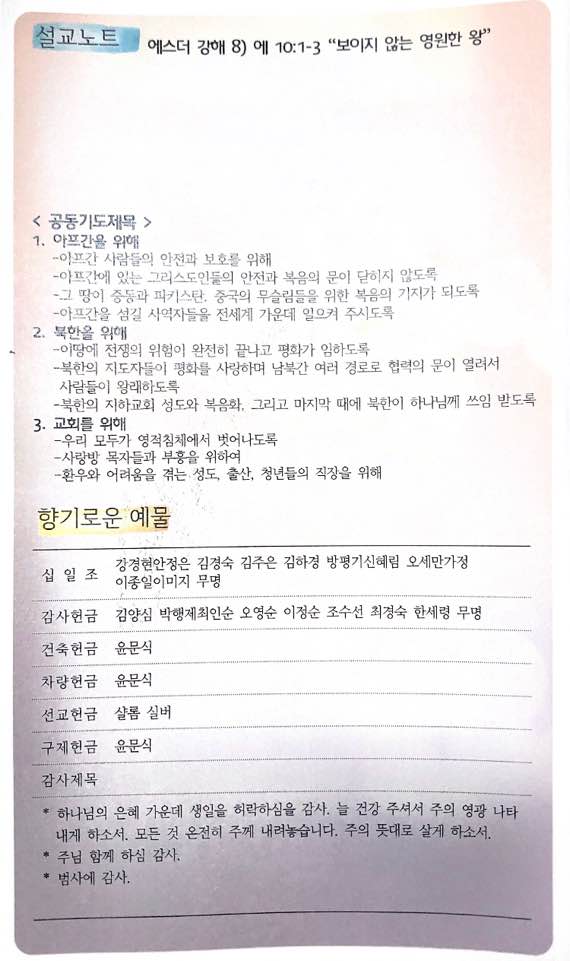 설교노트 에스더 강해 8) 에 10:1-3 “보이지 않는 영원한 왕”
< 공동기도제목 >
1. 아프간을 위해
-아프간 사람들의 안전과 보호를 위해
-아프간에 있는 그리스도인들의 안전과 복음의 문이 닫히지 않도록
-그 땅이 중동과 파키스탄. 중국의 무슬림들을 위한 복음의 기지가 되도록
-아프간을 섬길 사역자들을 전세계 가운데 일으켜 주시도록
2. 북한을 위해
-이땅에 전쟁의 위험이 완전히 끝나고 평화가 임하도록
-북한의 지도자들이 평화를 사랑하며 남북간 여러 경로로 협력의 문이 열려서
사람들이 왕래하도록
-북한의 지하교회 성도와 복음화, 그리고 마지막 때에 북한이 하나님께 쓰임 받도록
3. 교회를 위해
-우리 모두가 영적침체에서 벗어나도록
-사랑방 목자들과 부흥을 위하여
-환우와 어려움을 겪는 성도, 출산, 청년들의 직장을 위해
향기로운 예물
십 일 조 강경현안정은 김경숙 김주은 김하경 방평기신혜림 오세만가정
이종일이미지 무명
감사헌금 김양심 박행제최인순 오영순 이정순 조수선 최경숙 한세령 무명
건축헌금 윤문식
차량헌금 윤문식
선교헌금 샬롬 실버
구제헌금 윤문식
감사제목
* 하나님의 은혜 가운데 생일을 허락하심을 감사. 늘 건강 주셔서 주의 영광 나타
내게 하소서. 모든 것 온전히 주께 내려놓습니다. 주의 뜻대로 살게 하소서.
* 주님 함께 하심 감사.
* 범사에 감사.